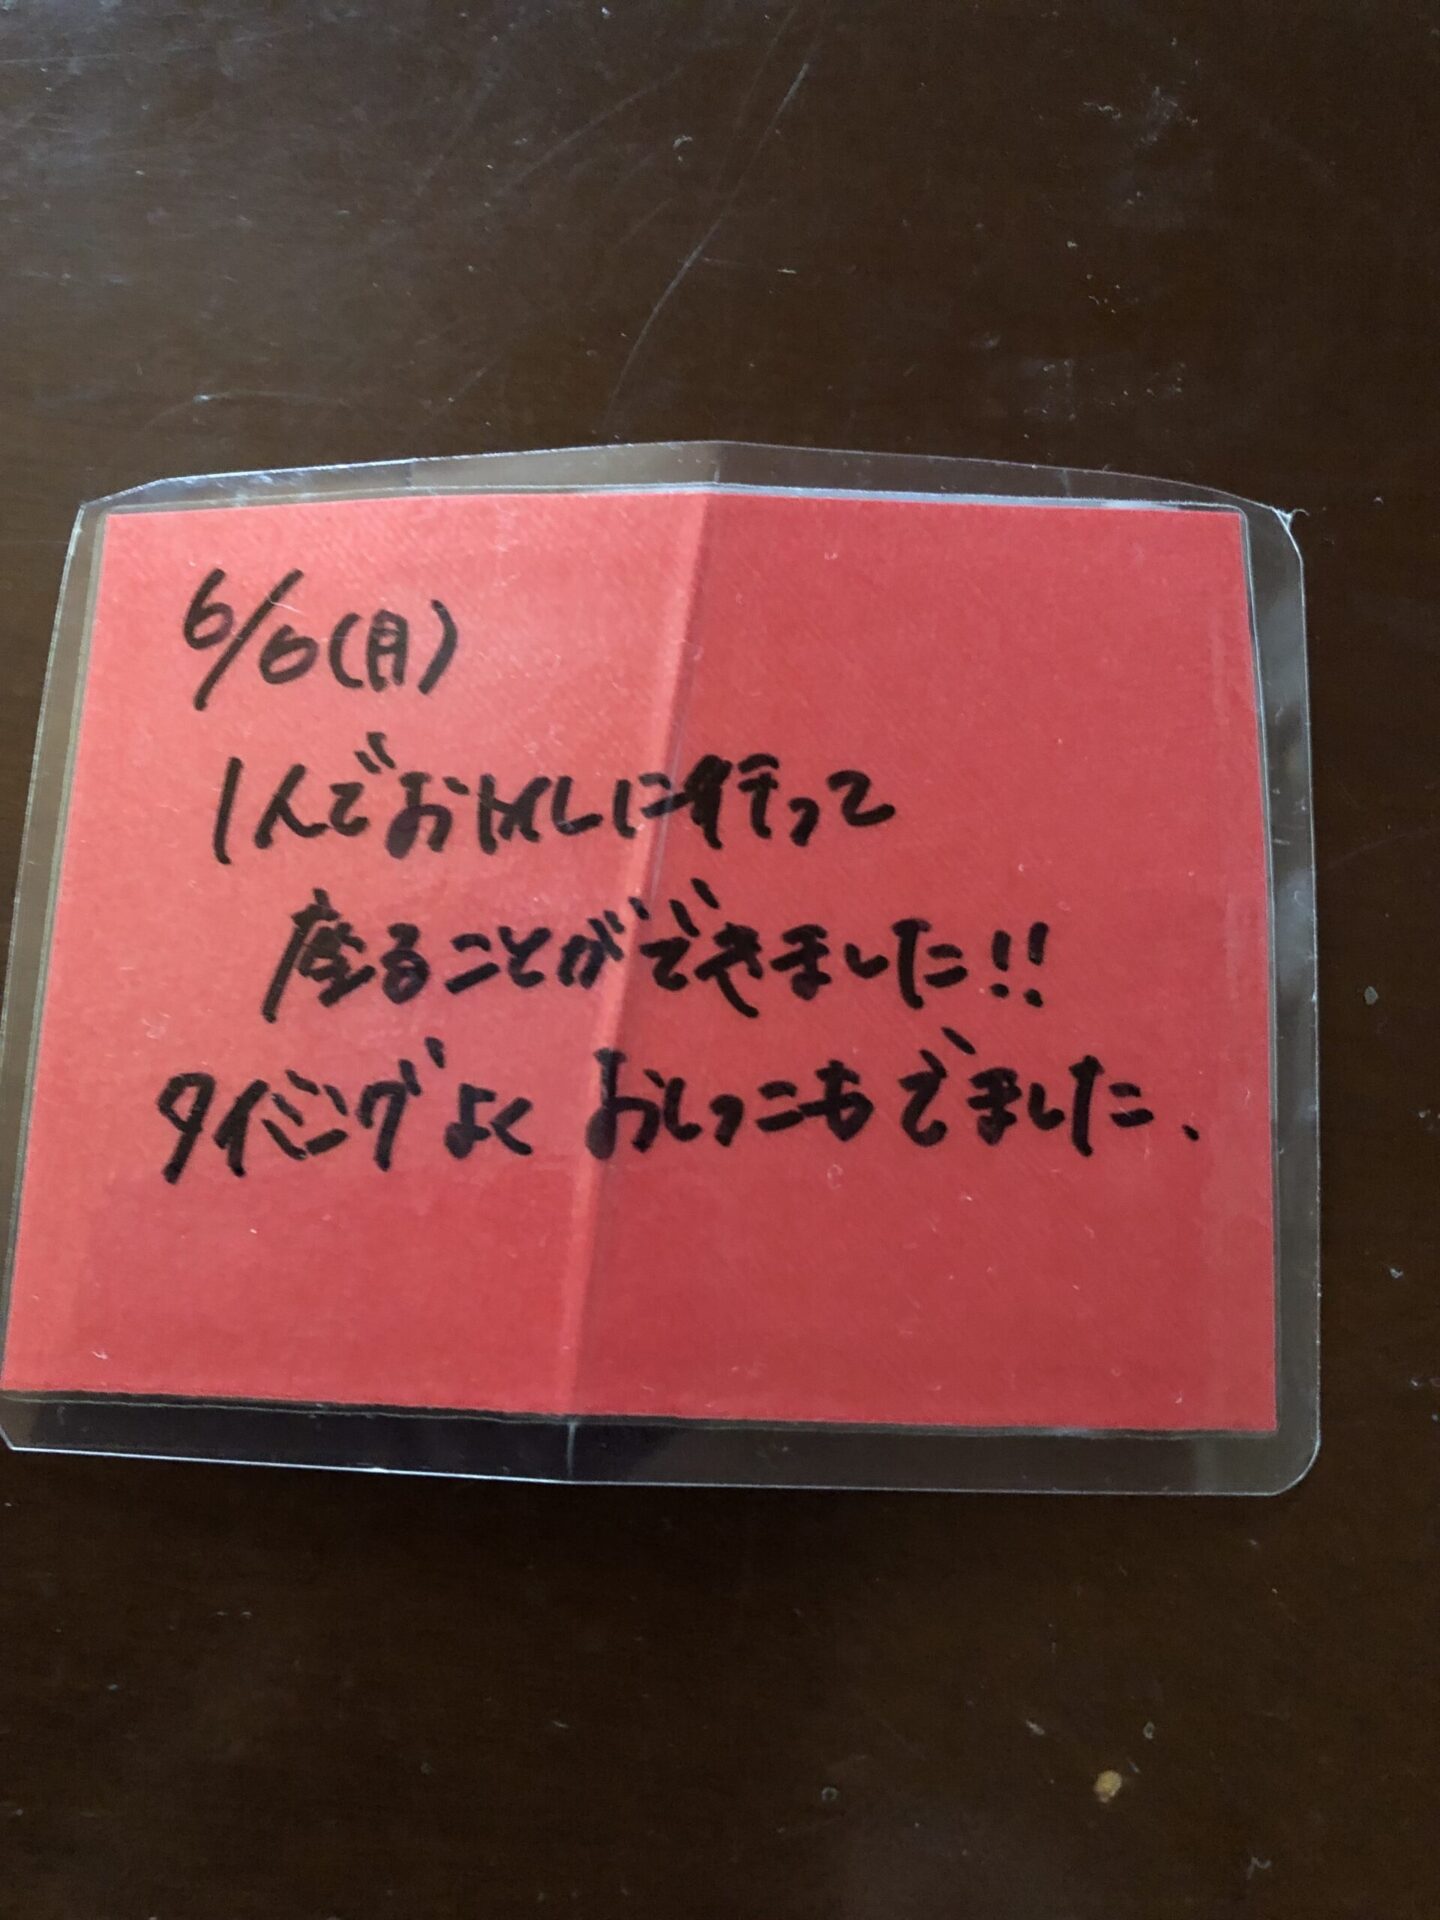 6/6(月)
1人でおトイレに行って
座ることができました!!
タイミングよく おしっこもでました.